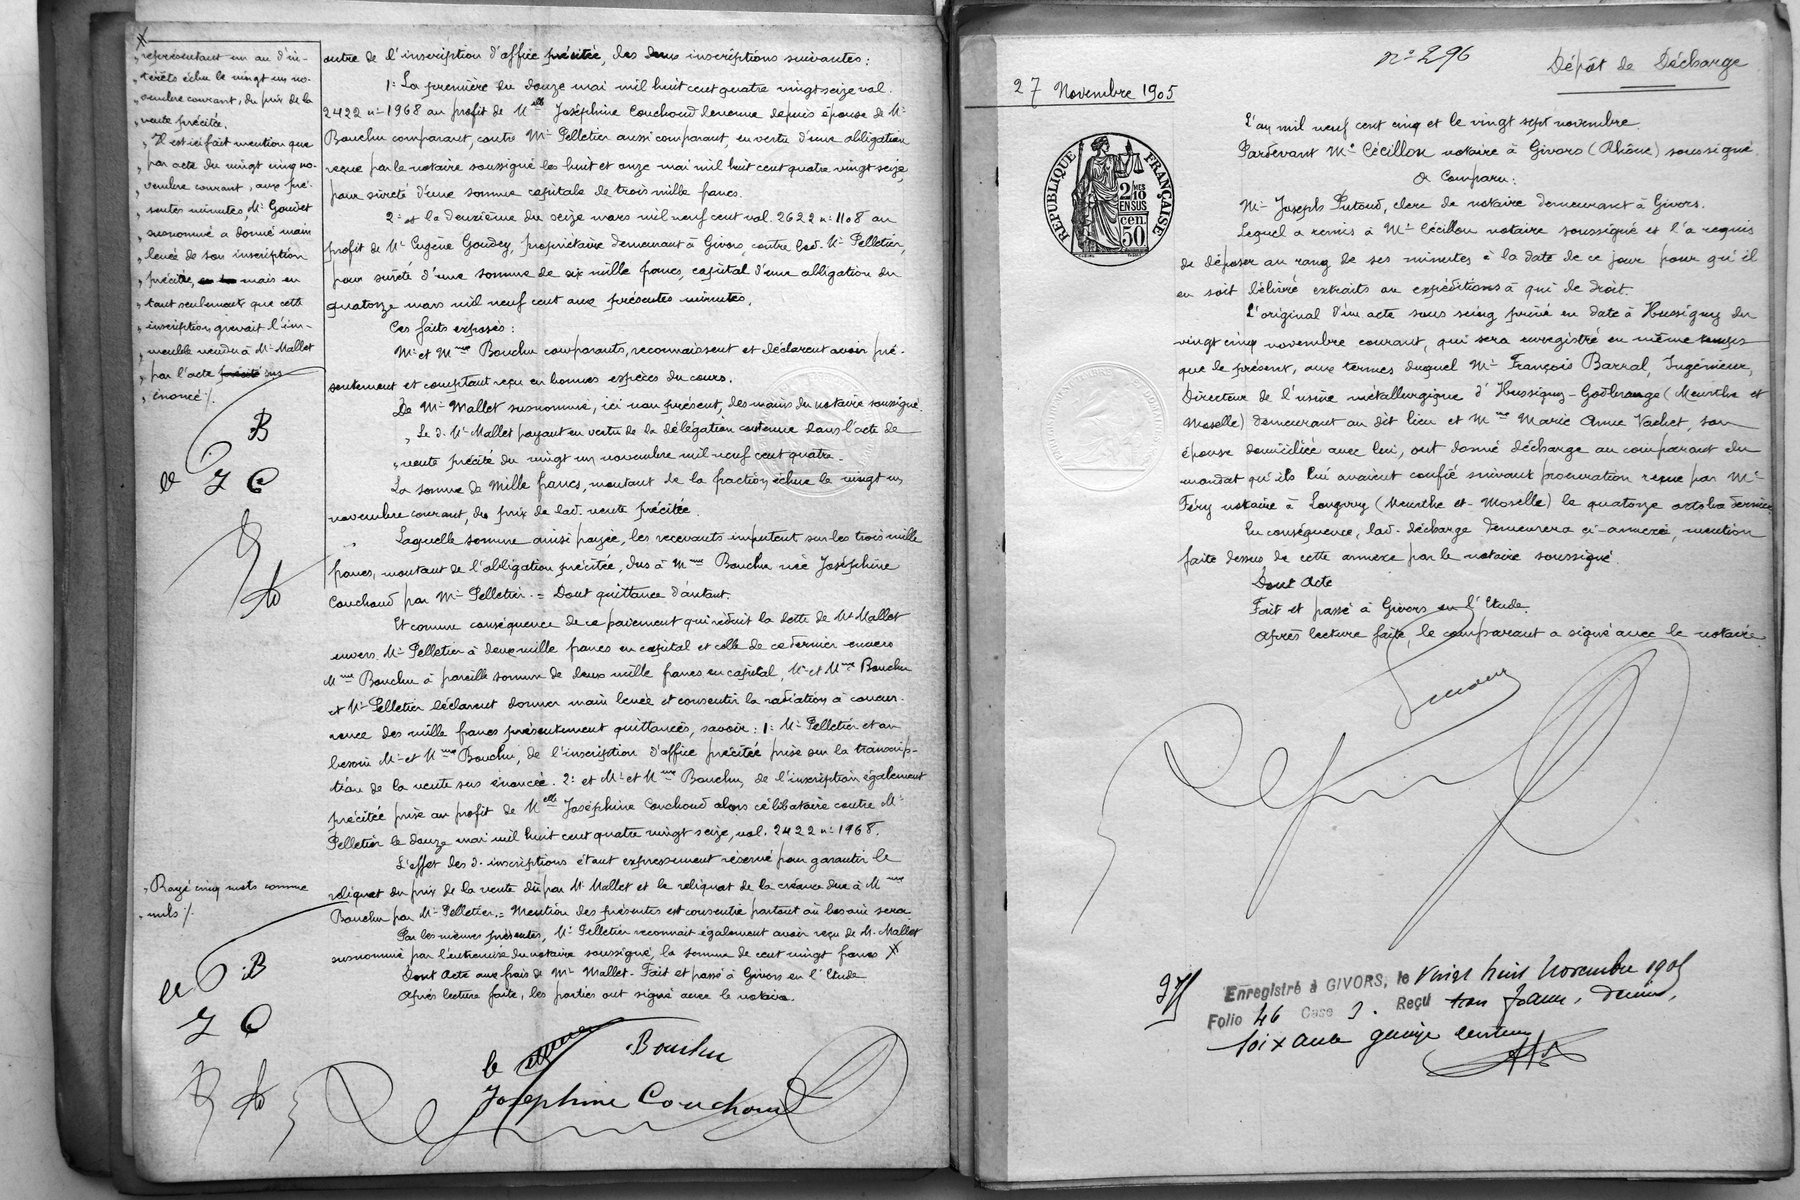 représentant un an d'in-
térêts échu le vingt un no-
vembre courant, du prix de la
vente précitée.
Il est ici fait mention que
par acte du vingt cinq no-
vembre courant, aux pré-
sentes minutes, Mr Goudet
susnommé a donné main
levée de son inscription
précitée, mais en
tant seulement que cette
inscription grevait l'im-
meuble vendu à Mr Mallet
par l'acte précité sus
énoncé ./.
B
J C
Rayé cinq mots comme
nuls ./.
B
J C
outre de l'inscription d'office précitée, des deux inscriptions suivantes :
1° La première du douze mai mil huit cent quatre vingt seize vol.
2422 n° 1968 au profit de Melle Joséphine Couchoud devenue depuis épouse de Mr
Bouchu comparant, contre Mr Pelletier aussi comparant, en vertu d'une obligation
reçue par le notaire soussigné les huit et onze mai mil huit cent quatre vingt seize,
pour sûreté d'une somme capitale de trois mille francs.
2° et la deuxième du seize mars mil neuf cent vol. 2622 n° 1108 au
profit de Mr Eugène Goudey, propriétaire demeurant à Givors, contre led. Mr Pelletier,
pour sûreté d'une somme de six mille francs, capital d'une obligation du
quatorze mars mil neuf cent aux présentes minutes.
Ces faits exposés :
Mr et Mme Bouchu comparants, reconnaissent et déclarent avoir pré-
sentement et comptant reçu en bonnes espèces du cours.
De Mr Mallet susnommé, ici non présent, des mains du notaire soussigné.
Le d. Mr Mallet payant en vertu de la délégation contenue dans l'acte de
vente précité du vingt un novembre mil neuf cent quatre.
La somme de Mille francs, montant de la fraction échue le vingt un
novembre courant, du prix de lad. vente précitée.
Laquelle somme ainsi payée, les recevants imputent sur les trois mille
francs, montant de l'obligation précitée, dus à Mme Bouchu née Joséphine
Couchoud par Mr Pelletier. = Dont quittance d'autant.
Et comme conséquence de ce paiement qui réduit la dette de Mr Mallet
envers Mr Pelletier à deux mille francs en capital et celle de ce dernier envers
Mme Bouchu à pareille somme de deux mille francs en capital, Mr et Mme Bouchu
et Mr Pelletier déclarent donner main levée et consentir la radiation à concur-
rence des mille francs présentement quittancés, savoir : 1° Mr Pelletier et au
besoin Mr et Mme Bouchu, de l'inscription d'office précitée prise sur la transcrip-
tion de la vente sus énoncée. 2° et Mr et Mme Bouchu, de l'inscription également
précitée prise au profit de Melle Joséphine Couchoud alors célibataire contre Mr
Pelletier le douze mai mil huit cent quatre vingt seize, vol. 2422 n° 1968.
L'effet des d. inscriptions étant expressément réservé pour garantir le
reliquat du prix de la vente dû par Mr Mallet et le reliquat de la créance due à Mme
Bouchu par Mr Pelletier. = Mention des présentes est consentie partout où besoin sera.
Par les mêmes présentes, Mr Pelletier reconnait également avoir reçu de Mr Mallet
susnommé par l'entremise du notaire soussigné, la somme de cent vingt francs
Dont Acte aux frais de Mr Mallet - Fait et passé à Givors en l'Etude
Après lecture faite, les parties ont signé avec le notaire.
Bouchu
Joséphine Couchoud
n° 296
Dépôt de Décharge
27 Novembre 1905
RÉPUBLIQUE FRANÇAISE
2/10 EN SUS
50 cen
L'an mil neuf cent cinq et le vingt sept novembre.
Pardevant Me Cécillon notaire à Givors (Rhône) soussigné
a Comparu :
Mr Joseph Putoud, clerc de notaire demeurant à Givors.
Lequel a remis à Me Cécillon notaire soussigné et l'a requis
de déposer au rang de ses minutes à la date de ce jour pour qu'il
en soit délivré extraits ou expéditions à qui de droit.
L'original d'un acte sous seing privé en date à Hussigny du
vingt cinq novembre courant, qui sera enregistré en même temps
que le présent, aux termes duquel Mr François Barral, Ingénieur,
Directeur de l'usine métallurgique d'Hussigny-Godbrange (Meurthe et
Moselle) demeurant au dit lieu et Mme Marie Anne Vachet, son
épouse domiciliée avec lui, ont donné décharge au comparant du
mandat qu'ils lui avaient confié suivant procuration reçue par Me
Féry notaire à Longwy (Meurthe et Moselle) le quatorze octobre dernier
En conséquence, lad. décharge demeurera ci-annexée, mention
faite dessus de cette annexe par le notaire soussigné.
Dont Acte
Fait et passé à Givors en l'Etude.
Après lecture faite, le comparant a signé avec le notaire
Enregistré à GIVORS, le vingt huit Novembre 1905
Folio 46 Case 3. Reçu trois francs, décimes,
soixante quinze centimes